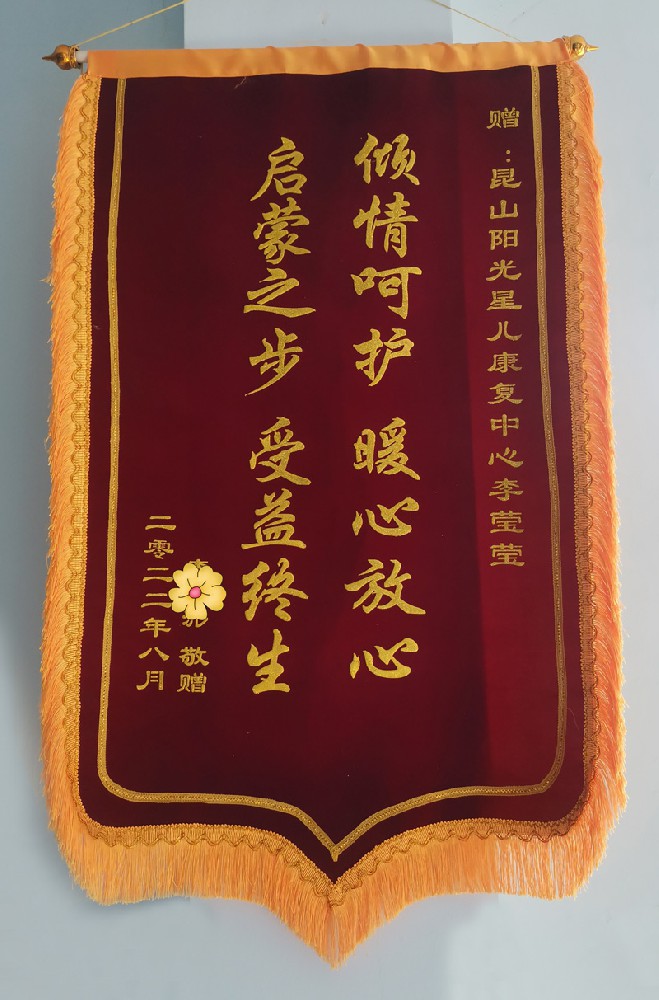 赠：昆山阳光星儿康复中心李莹莹
倾情呵护 暖心放心
启蒙之步 受益终生
敬赠
二零二二年八月